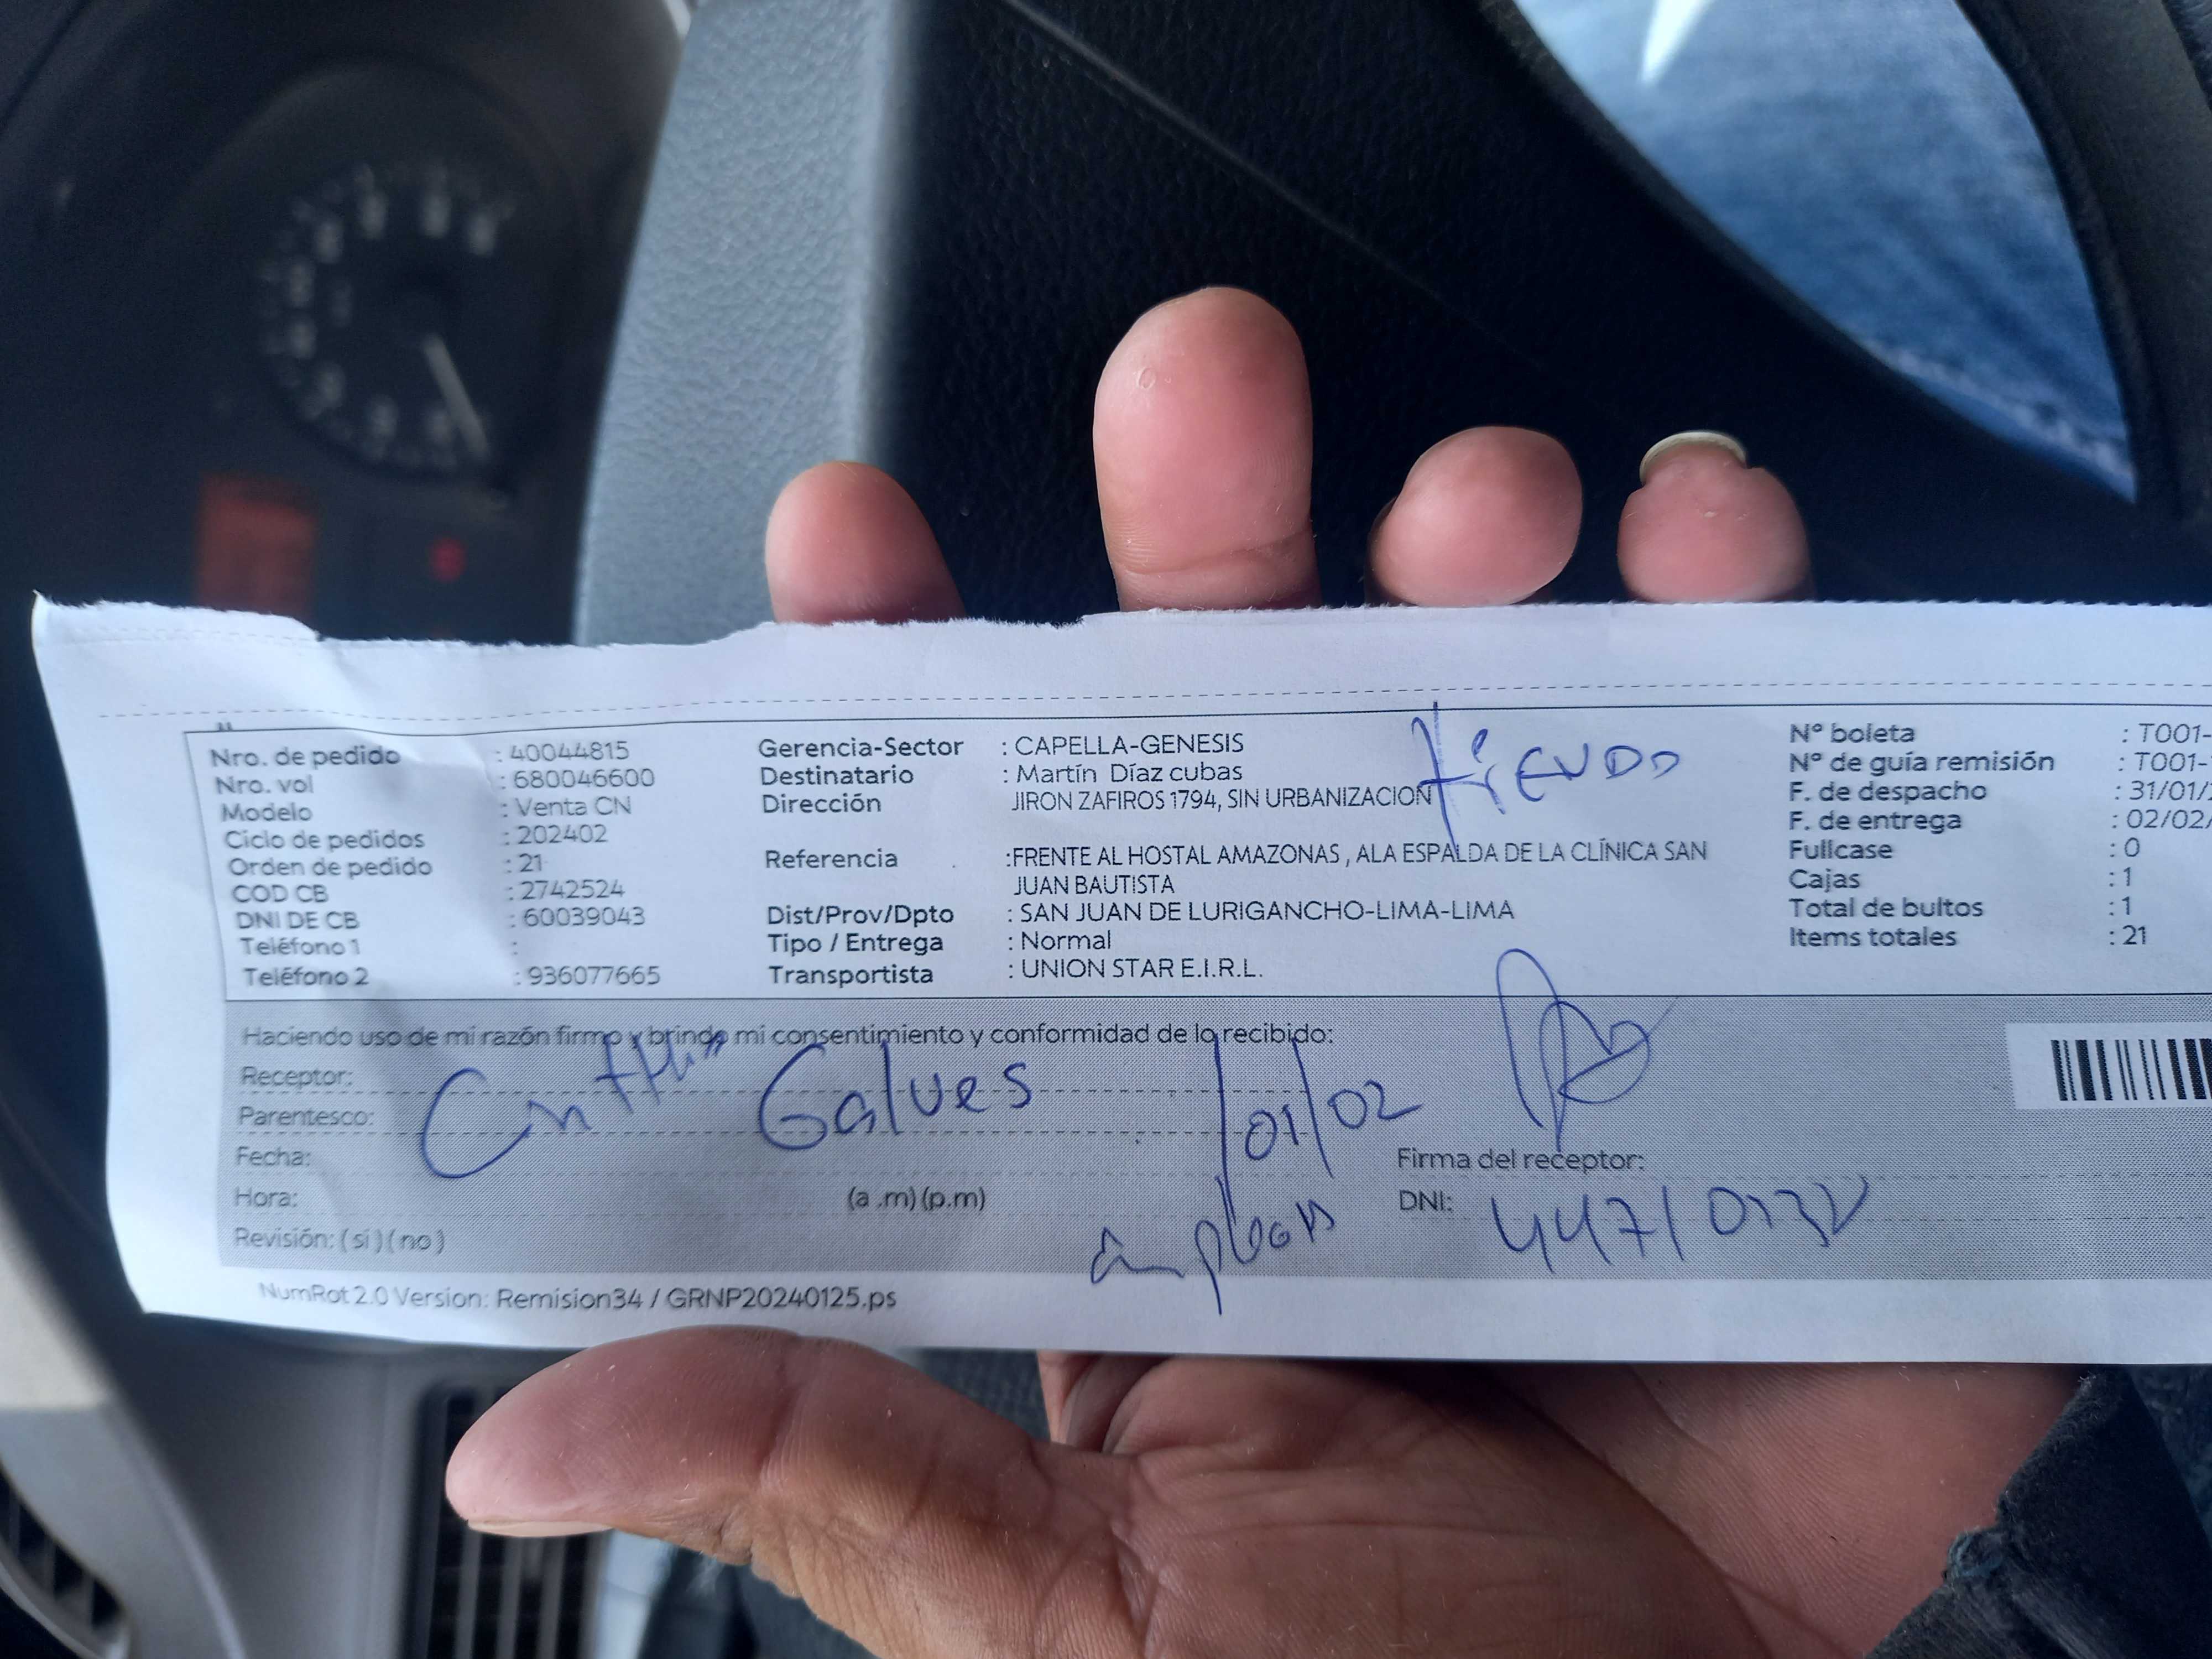 Nro. de pedido : 40044815
Nro. vol : 680046600
Modelo : Venta CN
Ciclo de pedidos : 202402
Orden de pedido : 21
COD CB : 2742524
DNI DE CB : 60039043
Teléfono 1 :
Teléfono 2 : 936077665
Gerencia-Sector : CAPELLA-GENESIS
Destinatario : Martín Díaz cubas
Dirección JIRON ZAFIROS 1794, SIN URBANIZACION
Referencia :FRENTE AL HOSTAL AMAZONAS , ALA ESPALDA DE LA CLÍNICA SAN
JUAN BAUTISTA
Dist/Prov/Dpto : SAN JUAN DE LURIGANCHO-LIMA-LIMA
Tipo / Entrega : Normal
Transportista : UNION STAR E.I.R.L.
N° boleta : T001-
N° de guía remisión : T001-
F. de despacho : 31/01/
F. de entrega : 02/02/
Fullcase : 0
Cajas : 1
Total de bultos : 1
Items totales : 21
Haciendo uso de mi razón firmo y brindo mi consentimiento y conformidad de lo recibido:
Receptor:
Parentesco: Galves
01/02
Fecha:
Firma del receptor:
Hora: (a .m) (p.m)
DNI:
Revisión: ( si ) ( no )
NumRot 2.0 Version: Remision34 / GRNP20240125.ps